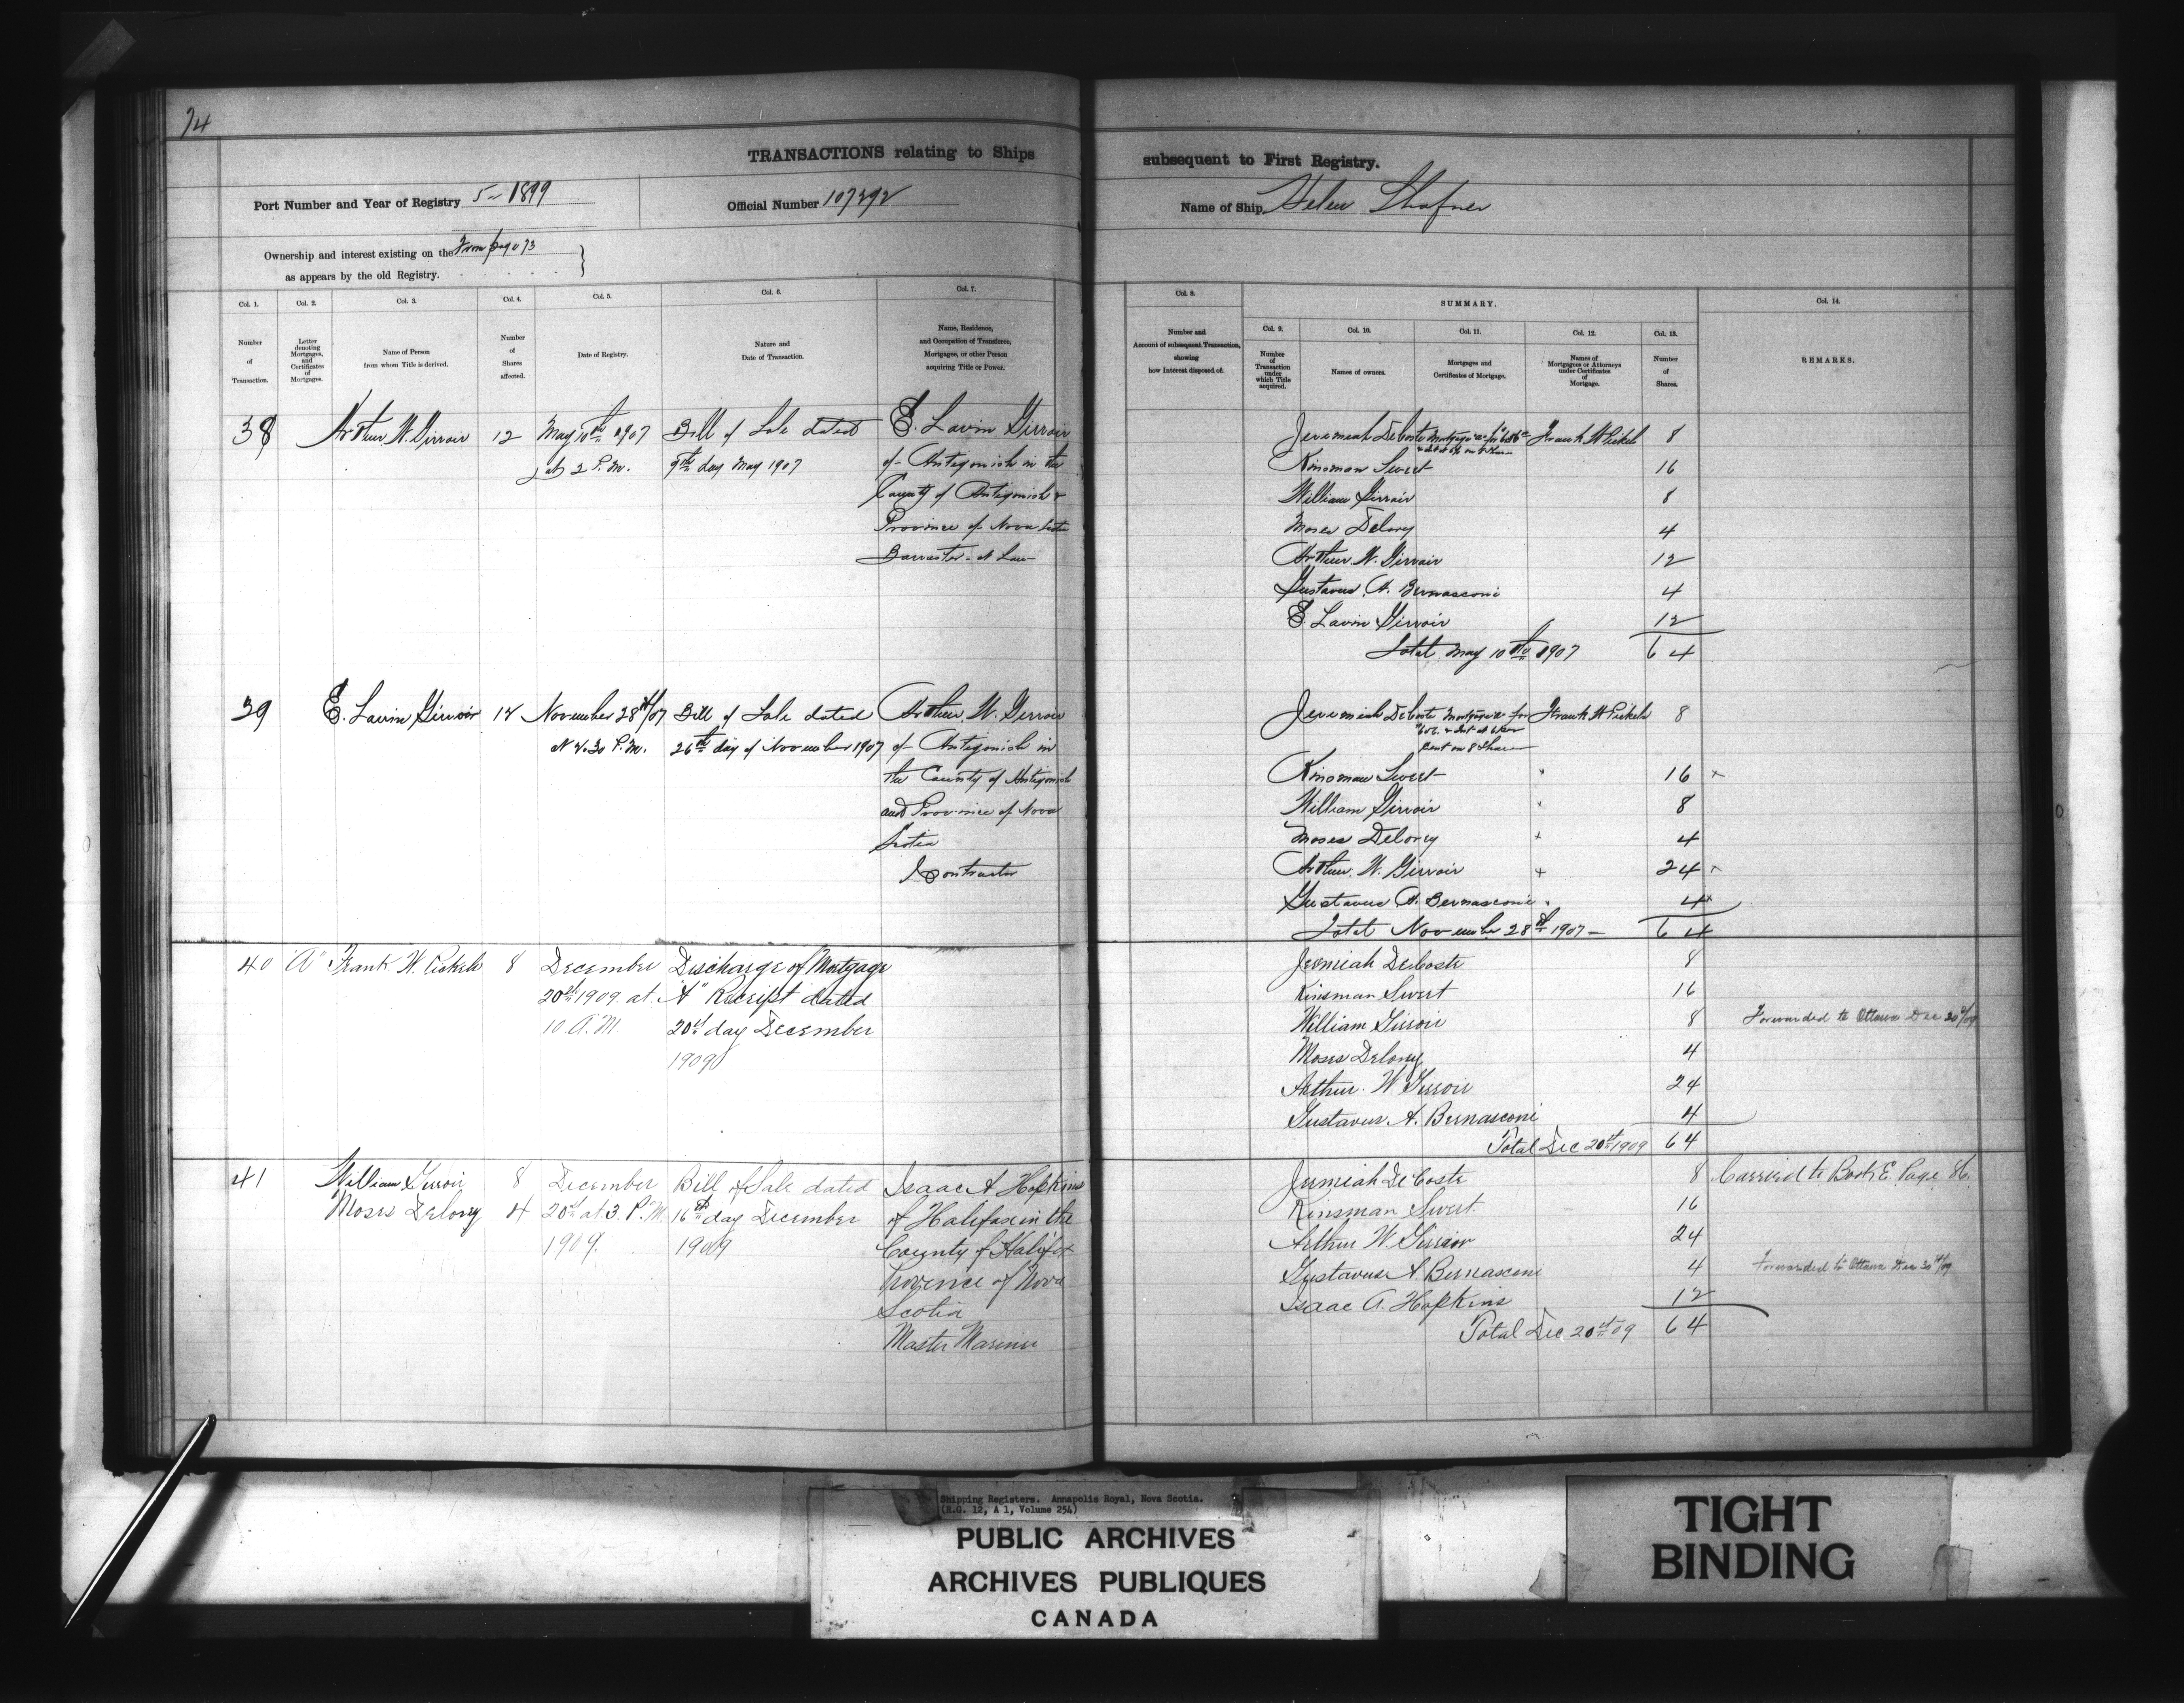 74
TRANSACTIONS relating to Ships
Port Number and Year of Registry 5-1899
Official Number 107292
Ownership and interest existing on the From page 73
as appears by the old Registry.
Col. 1.
Number of Transaction.
Col. 2.
Letter denoting Mortgages, and Certificates of Mortgages.
Col. 3.
Name of Person from whom Title is derived.
Col. 4.
Number of Shares affected.
Col. 5.
Date of Registry.
Col. 6.
Nature and Date of Transaction.
Col. 7.
Name, Residence, and Occupation of Transferee, Mortgagee, or other Person acquiring Title or Power.
38 Arthur W. Girroir 12 May 10th 1907 Bill of Sale dated E. Lavin Girroir
at 2 P.M. 9th day May 1907 of Antigonish in the
County of Antigonish &
Province of Nova Scotia
Barrister at Law
39 E. Lavin Girroir 12 November 28th/07 Bill of Sale dated Arthur W. Girroir
at 2.30 P.M. 26th day of November 1907 of Antigonish in
the County of Antigonish
and Province of Nova
Scotia
Contractor
40 "A" Frank W. Pickels 8 December Discharge of Mortgage
20th 1909 at "A" Receipt dated
10 A.M. 20th day December
1909
41 William Girroir 8 December Bill of Sale dated Isaac A Hopkins
Moses Delorey 4 20th at 3. P.M. 16th day December of Halifax in the
1909. 1909 County of Halifax
Province of Nova
Scotia
Master Mariner
subsequent to First Registry.
Name of Ship Helen Shafner
Col. 8.
Number and Account of subsequent Transaction, showing how Interest disposed of.
SUMMARY.
Col. 9.
Number of Transaction under which Title acquired.
Col. 10.
Names of owners.
Col. 11.
Mortgages and Certificates of Mortgage.
Col. 12.
Names of Mortgagees or Attorneys under Certificates of Mortgage.
Col. 13.
Number of Shares.
Col. 14.
REMARKS.
Jeremiah DeCoste Mortgage "A" for Frank W Pickels 8
Kinsman Sweet 16
William Girroir 8
Moses Delorey 4
Arthur W. Girroir 12
Gustavus A. Bernasconi 4
E. Lavin Girroir 12
Total May 10th 1907 64
Jeremiah DeCoste Mortgage "A" for Frank W Pickels 8
& Int at 6 per
Cent on 8 Shares
Kinsman Sweet 16
William Girroir 8
Moses Delorey 4
Arthur W. Girroir 24
Gustavus A. Bernasconi 4
Total November 28th 1907 64
Jeremiah DeCoste 8
Kinsman Sweet 16
William Girroir 8 Forwarded to Ottawa Dec 30th/09
Moses Delorey 4
Arthur W Girroir 24
Gustavus A. Bernasconi 4
Total Dec 20th 1909 64
Jermiah DeCoste 8 Carried to Book E. Page 86.
Kinsman Sweet 16
Arthur W. Girroir 24
Gustavus A. Bernasconi 4 Forwarded to Ottawa Dec 30th/09
Isaac A. Hopkins 12
Total Dec 20th 09 64
Shipping Registers. Annapolis Royal, Nova Scotia.
(R.G. 12, A 1, Volume 254)
PUBLIC ARCHIVES
ARCHIVES PUBLIQUES
CANADA
TIGHT
BINDING